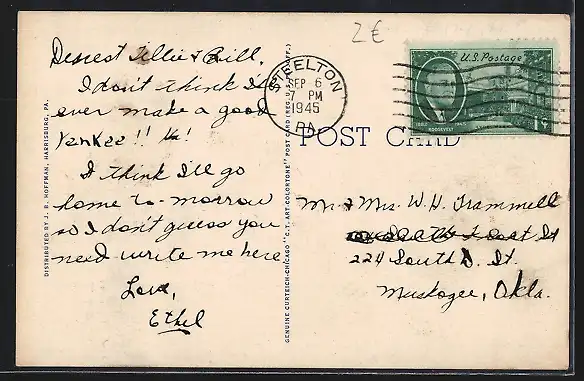 2€
Dearest Tillie & Bill,
I don't think I'd
ever make a good
Yankee!! Ha!
I think I'll go
home to-morrow
so I don't guess you
need write me here
Love,
Ethel
STEELTON
SEP 6
7 PM
1945
PA.
U.S. Postage
ROOSEVELT
1¢
POST CARD
Mr. & Mrs. W. H. Trammell
224 South D. St.
Muskogee, Okla.
DISTRIBUTED BY J. B. HOFFMAN, HARRISBURG, PA.
GENUINE CURTEICH-CHICAGO "C.T. ART-COLORTONE" POST CARD (REG. U.S. PAT. OFF.)